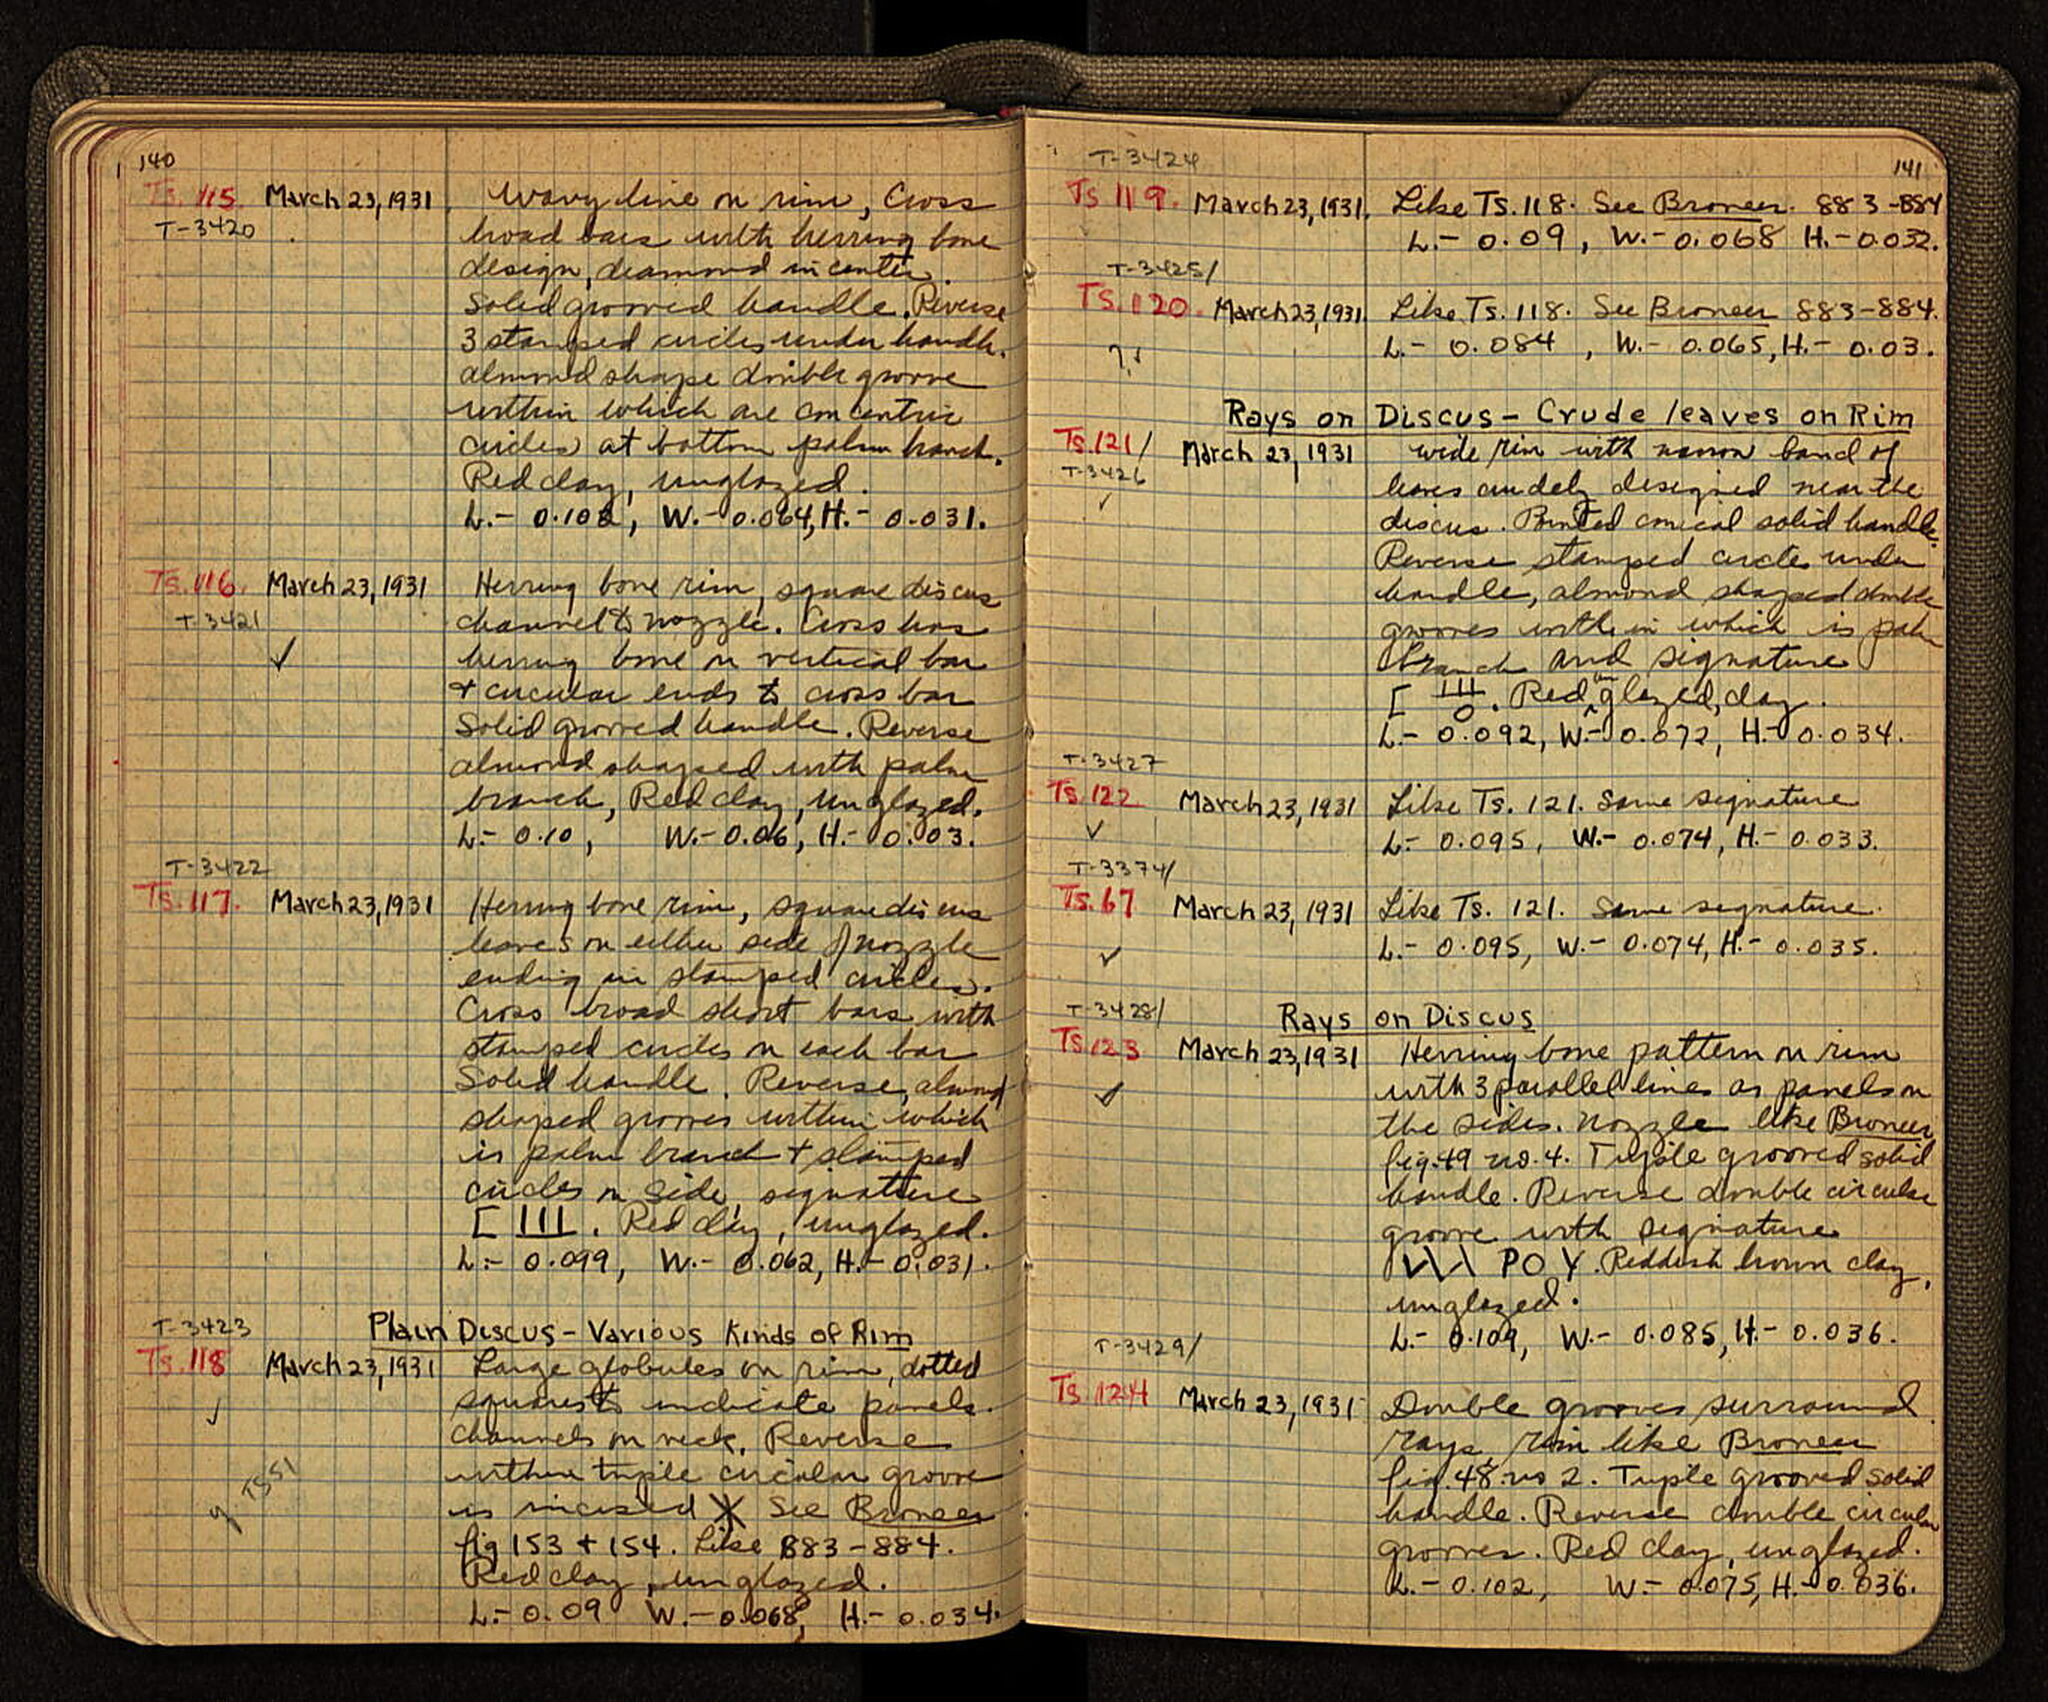 140
Ts. 115. March 23, 1931. Wavy line on rim, Cross
T-3420 broad bars with herring bone
design, diamond in center.
Solid grooved handle. Reverse
3 stamped circles under handle.
almond shape double groove
within which are concentric
circles at bottom palm branch.
Red clay, unglazed.
L.- 0.102, W.- 0.064, H.- 0.031.
Ts. 116. March 23, 1931 Herring bone rim, square discus
T-3421 channel to nozzle. Cross has
✓ herring bone on vertical bar
+ circular ends to cross bar
Solid grooved handle. Reverse
almond shaped with palm
branch, Red clay, unglazed.
L.- 0.10, W.- 0.06, H.- 0.03.
T-3422
Ts. 117. March 23, 1931 Herring bone rim, square discus
leaves on either side of nozzle
ending in stamped circles.
Cross broad short bars with
stamped circles on each bar
Solid handle. Reverse, almond
shaped grooves within which
is palm branch + stamped
circles on side, signature
[ III. Red clay, unglazed.
L.- 0.099, W.- 0.062, H.- 0.031.
T-3423 Plain Discus - Various Kinds of Rim
Ts. 118 March 23, 1931 Large globules on rim, dotted
✓ squares to indicate panels.
channels on neck. Reverse
TS51 within triple circular groove
is incised X See Broneer
fig 153 + 154. Like 883-884.
Red clay, unglazed.
L.- 0.09 W.- 0.068, H.- 0.034.
T-3424 141
Ts 119. March 23, 1931. Like Ts. 118. See Broneer. 883-884
L.- 0.09, W.- 0.068 H.- 0.032.
T-3425/
Ts. 120. March 23, 1931 Like Ts. 118. See Broneer 883-884.
L.- 0.084, W.- 0.065, H.- 0.03.
Rays on Discus - Crude leaves on Rim
Ts. 121/ March 23, 1931 wide rim with narrow band of
T-3426 leaves crudely designed near the
✓ discus. Pointed conical solid handle.
Reverse stamped circle under
handle, almond shaped double
grooves within which is palm
branch and signature
[ III O. Red unglazed, clay.
L.- 0.092, W.- 0.072, H.- 0.034.
T-3427
Ts. 122 March 23, 1931 Like Ts. 121. Same signature
✓ L.- 0.095, W.- 0.074, H.- 0.033.
T-3374/
Ts. 67 March 23, 1931 Like Ts. 121. Same signature.
✓ L.- 0.095, W.- 0.074, H.- 0.035.
T-3428/ Rays on Discus
Ts. 123 March 23, 1931 Herring bone pattern on rim
✓ with 3 parallel lines as panels on
the sides. Nozzle like Broneer
fig. 49 no. 4. Triple grooved solid
handle. Reverse double circular
groove with signature
POY. Reddish brown clay,
unglazed.
L.- 0.109, W.- 0.085, H.- 0.036.
T-3429/
Ts 124 March 23, 1931 Double grooves surround
rays, rim like Broneer
fig. 48. no 2. Triple grooved solid
handle. Reverse double circular
grooves. Red clay, unglazed.
L.- 0.102, W.- 0.075, H.- 0.036.